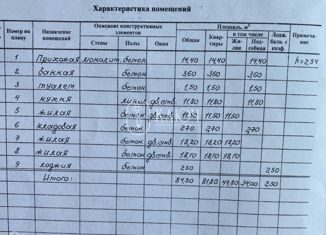 Характеристика помещений
Номер по плану
Назначение помещений
Описание конструктивных элементов
Стены Полы Окна
Площадь, м²
Общая
Квартиры
в том числе
Жилая
Подсобная
Лодж. балк. с коэф.
Примечание
1 Прихожая монолит. бетон 14,40 14,40 14,40 h=2,54
2 ванная бетон 3,60 3,60 3,60
3 туалет бетон 1,50 1,50 1,50
4 кухня линол дв.ств. 11,80 11,80 11,80
5 жилая бетон дв.ств. 11,50 11,50 11,50
6 кладовая бетон 2,70 2,70 2,70
7 жилая бетон дв.ств. 18,20 18,20 18,20
8 жилая бетон дв.ств. 18,10 18,10 18,10
9 лоджия бетон 2,50 2,50
Итого: 84,30 81,80 47,80 34,00 2,50